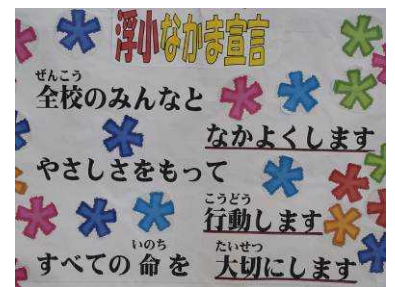 浮小なかま宣言
ぜんこう
全校のみんなと
なかよくします
やさしさをもって
こうどう
行動します
いのち たいせつ
すべての命を 大切にします